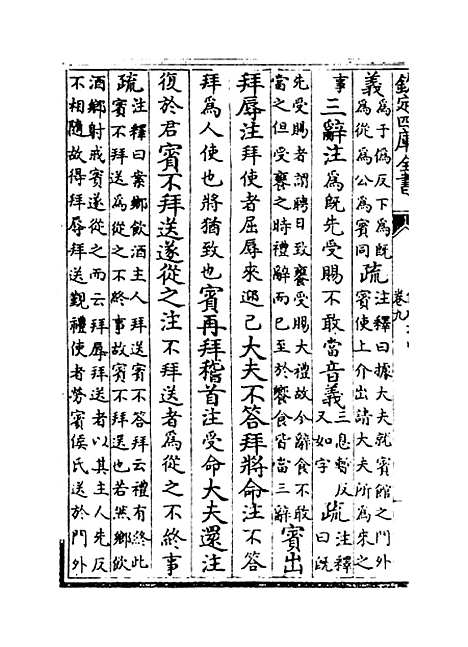 欽定四庫全書
卷九
義為于偽反下為既
為從為公為賓同疏注釋曰據大夫就賓館之門外
賓使上介出請大夫所為來之
事三辭注為既先受賜不敢當音義三息暫反
又如字疏注釋
曰既
先受賜者謂聘日致饔受賜大禮故今辭食不敢
當之但受饔之時禮辭而已至於饗食皆當三辭賓出
拜辱注拜使者屈辱來迎己大夫不答拜將命注不答
拜為人使也將猶致也賓再拜稽首注受命大夫還注
復於君賓不拜送遂從之注不拜送者為從之不終事
疏注釋曰案鄉飲酒主人拜送賓不答拜云禮有終此
賓不拜送為從之不終事故賓不拜送也若然鄉飲
酒鄉射戒賓遂從之而云拜辱拜送者以其主人先反
不相隨故得拜辱拜送覲禮使者勞賓侯氏送於門外